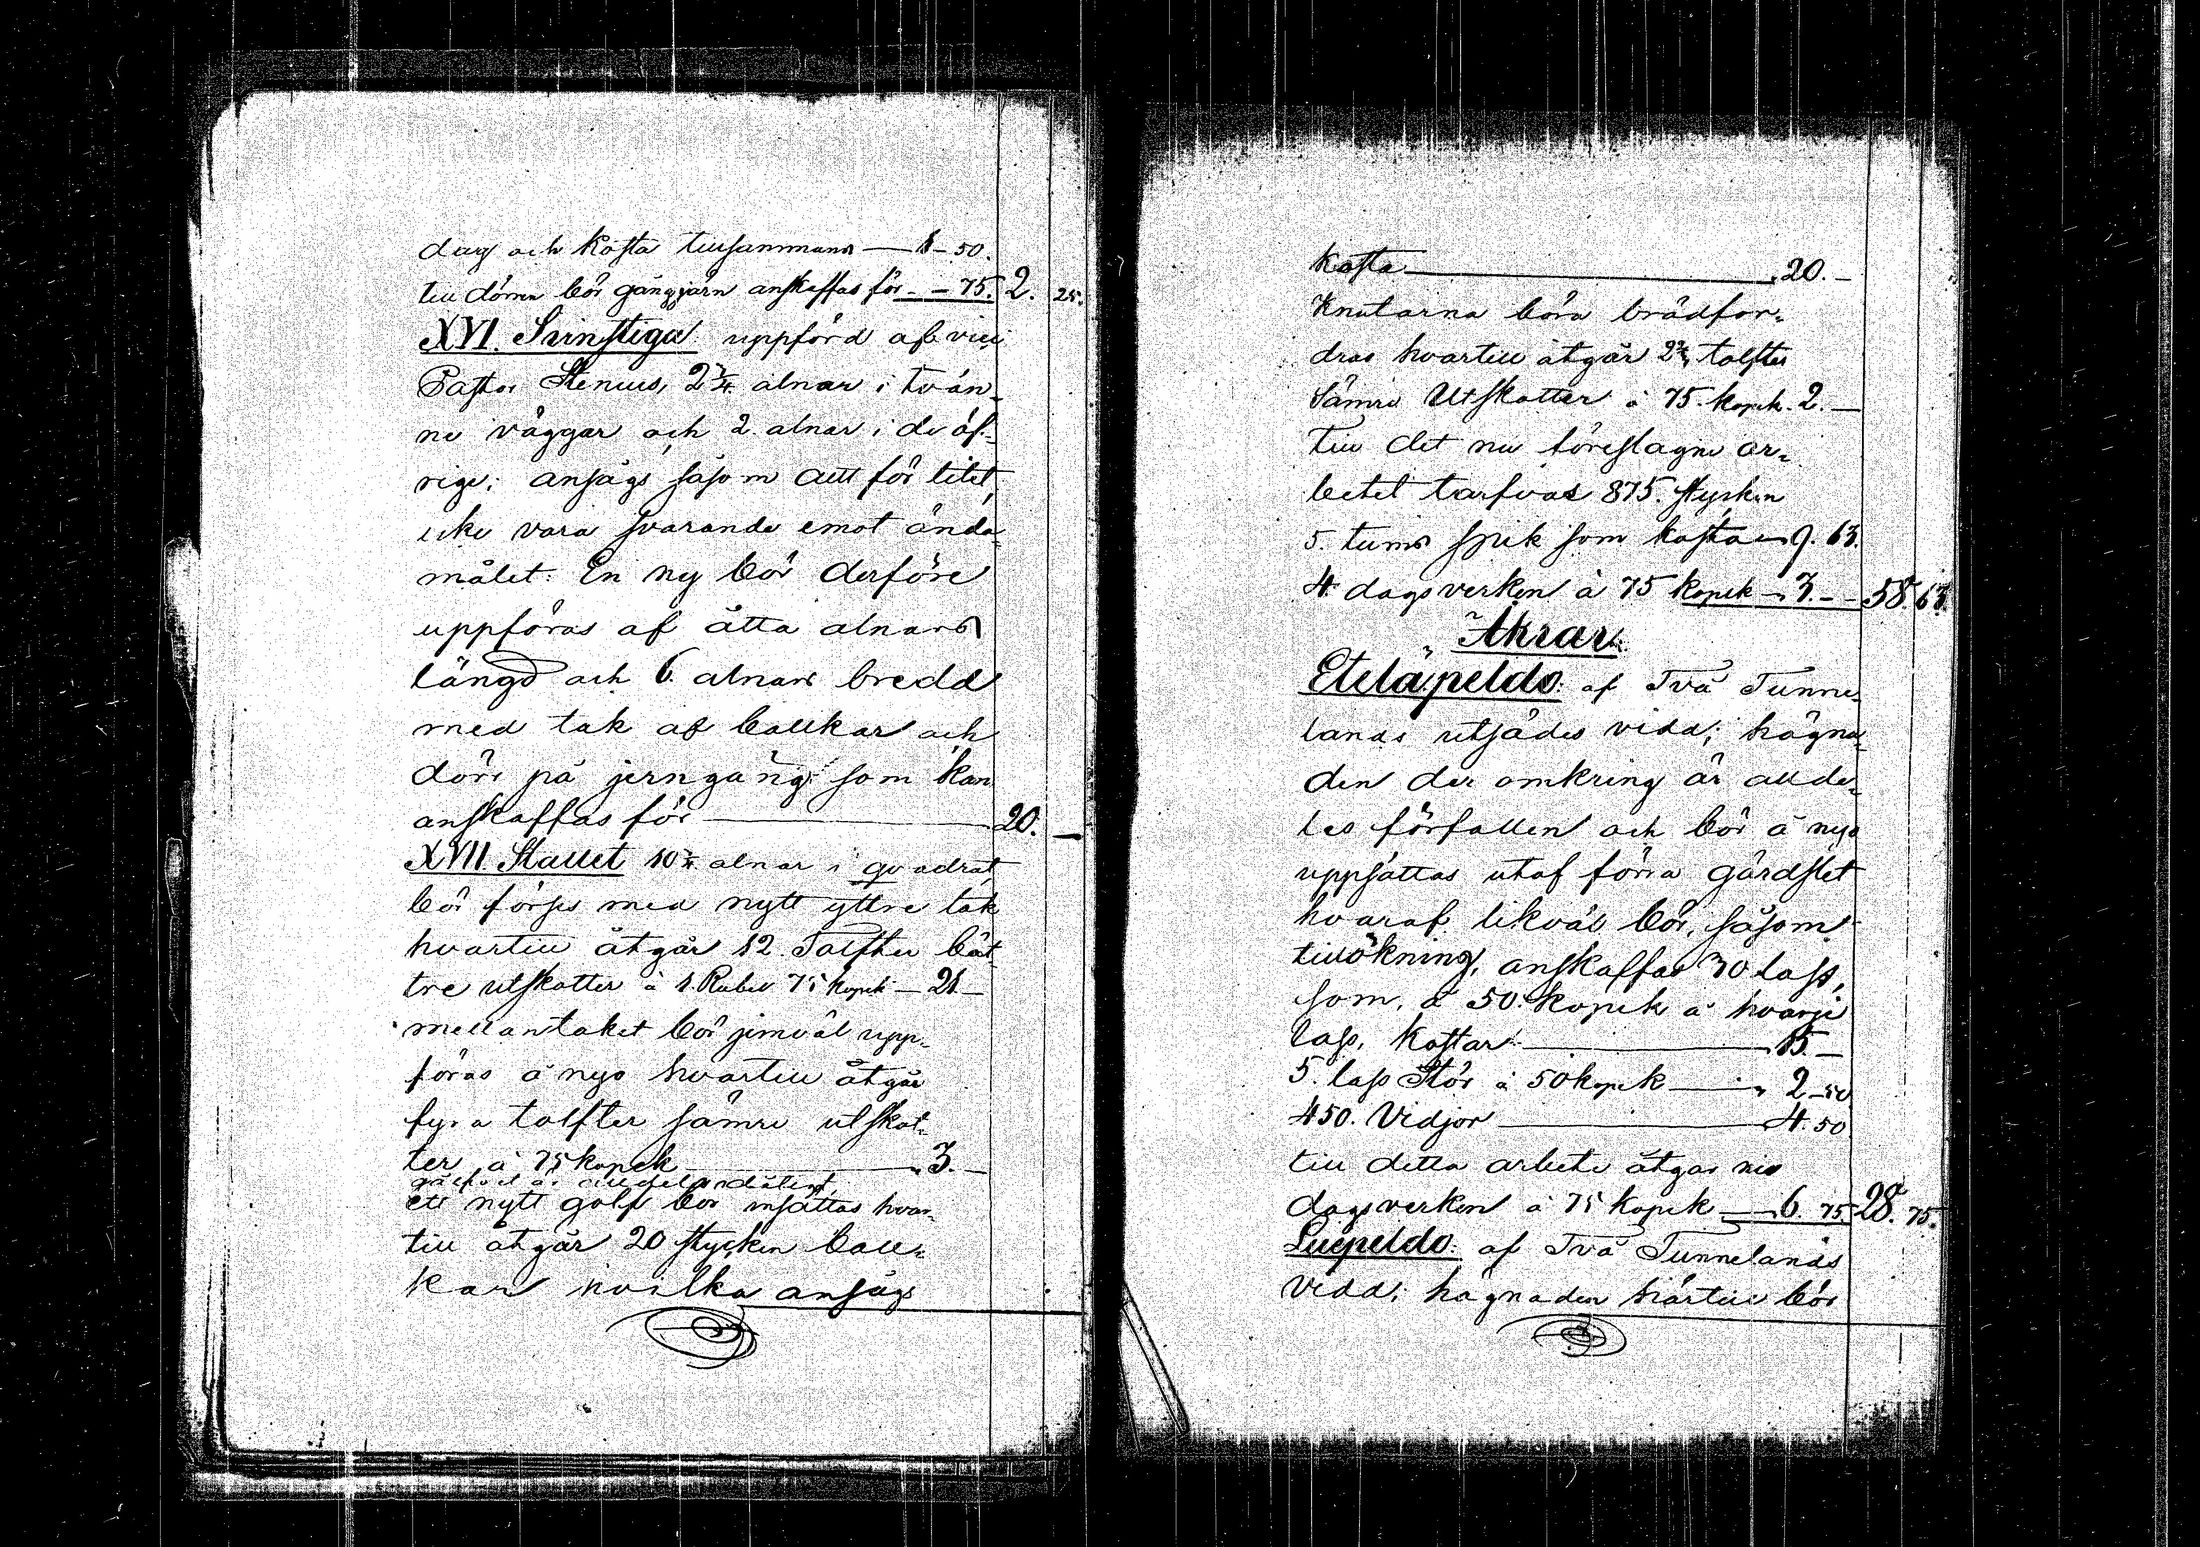 dag och kosta tillsammans — 1 – 50.
till dörren bör gångjärn anskaffas för – – 75. 2. 25.
XVI. Svinstiga: uppförd af vice
Pastor Stenius, 2 3/4 alnar i tvän-
ne väggar och 2 alnar i de öf-
riga; ansågs såsom allt för litet,
icke vara svarande emot ända-
målet. En ny bör derföre
uppföras af åtta alnars
längd och 6 alnars bredd
med tak af ballkar och
dörr på jerngång: som kan
anskaffas för — 20. —
XVII. Stallet 10 3/4 alnar i qvadrat,
bör förses med nytt yttre tak
hvartill åtgår 12. Tolfter bät-
tre utskotter à 1. Rubel 75 kopek — 21 —
mellantaket bör jemväl upp-
föras å nyo hvartill åtgår
fyra tolfter sämre utskot-
ter à 75 kopek — " 3. —
ett nytt golf bör insättas hvar-
till åtgår 20 stycken ball-
kar hvilka ansågs
kosta — " 20. —
Knutarna böra brädfor-
dras hvartill åtgår 2 2/3 tolfter
Sämre Utskotter à 75. kopek. 2. —
Till det nu föreslagne ar-
betet tarfvas 875. stycken
5. tums spik som kosta " 9. 63.
4. dagsverken à 75 kopek — " 3. – – 58. 63.
Åkrar.
Eteläpeldo: af Två Tunne-
lands utsädes vidd; hägna-
den der omkring är allde-
les förfallen och bör å nyo
uppsättas utaf förra gärdslet
hvaraf likväl bör, såsom
tillökning, anskaffas 30 lass,
som, à 50. kopek à hvarje
lass, kostar — " 15. —
5. lass Stör à 50 kopek — " 2 – 50
450. Vidjor — 4. 50
till detta arbete åtgår nio
dagsverken à 75 kopek — " 6. 75. 28. 75.
Luepeldo: af Två Tunnelands
Vidd; hägnaden härtill bör